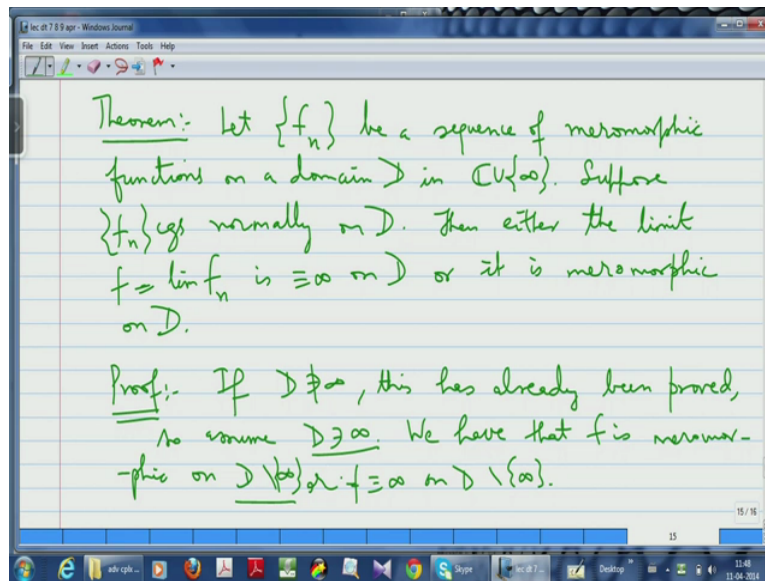 lec dt 7 8 9 apr - Windows Journal
File Edit View Insert Actions Tools Help
Theorem:- Let {f_n} be a sequence of meromorphic
functions on a domain D in ℂ∪{∞}. Suppose
{f_n} cgs normally on D. Then either the limit
f = lim f_n is ≡∞ on D or it is meromorphic
on D.
Proof:- If D ∌ ∞, this has already been proved,
so assume D ∋ ∞. We have that f is meromor-
-phic on D \ {∞} or f ≡ ∞ on D \ {∞}.
15 / 16
15
adv cplx ...
Skype
lec dt 7...
Desktop
11:48
11-04-2014